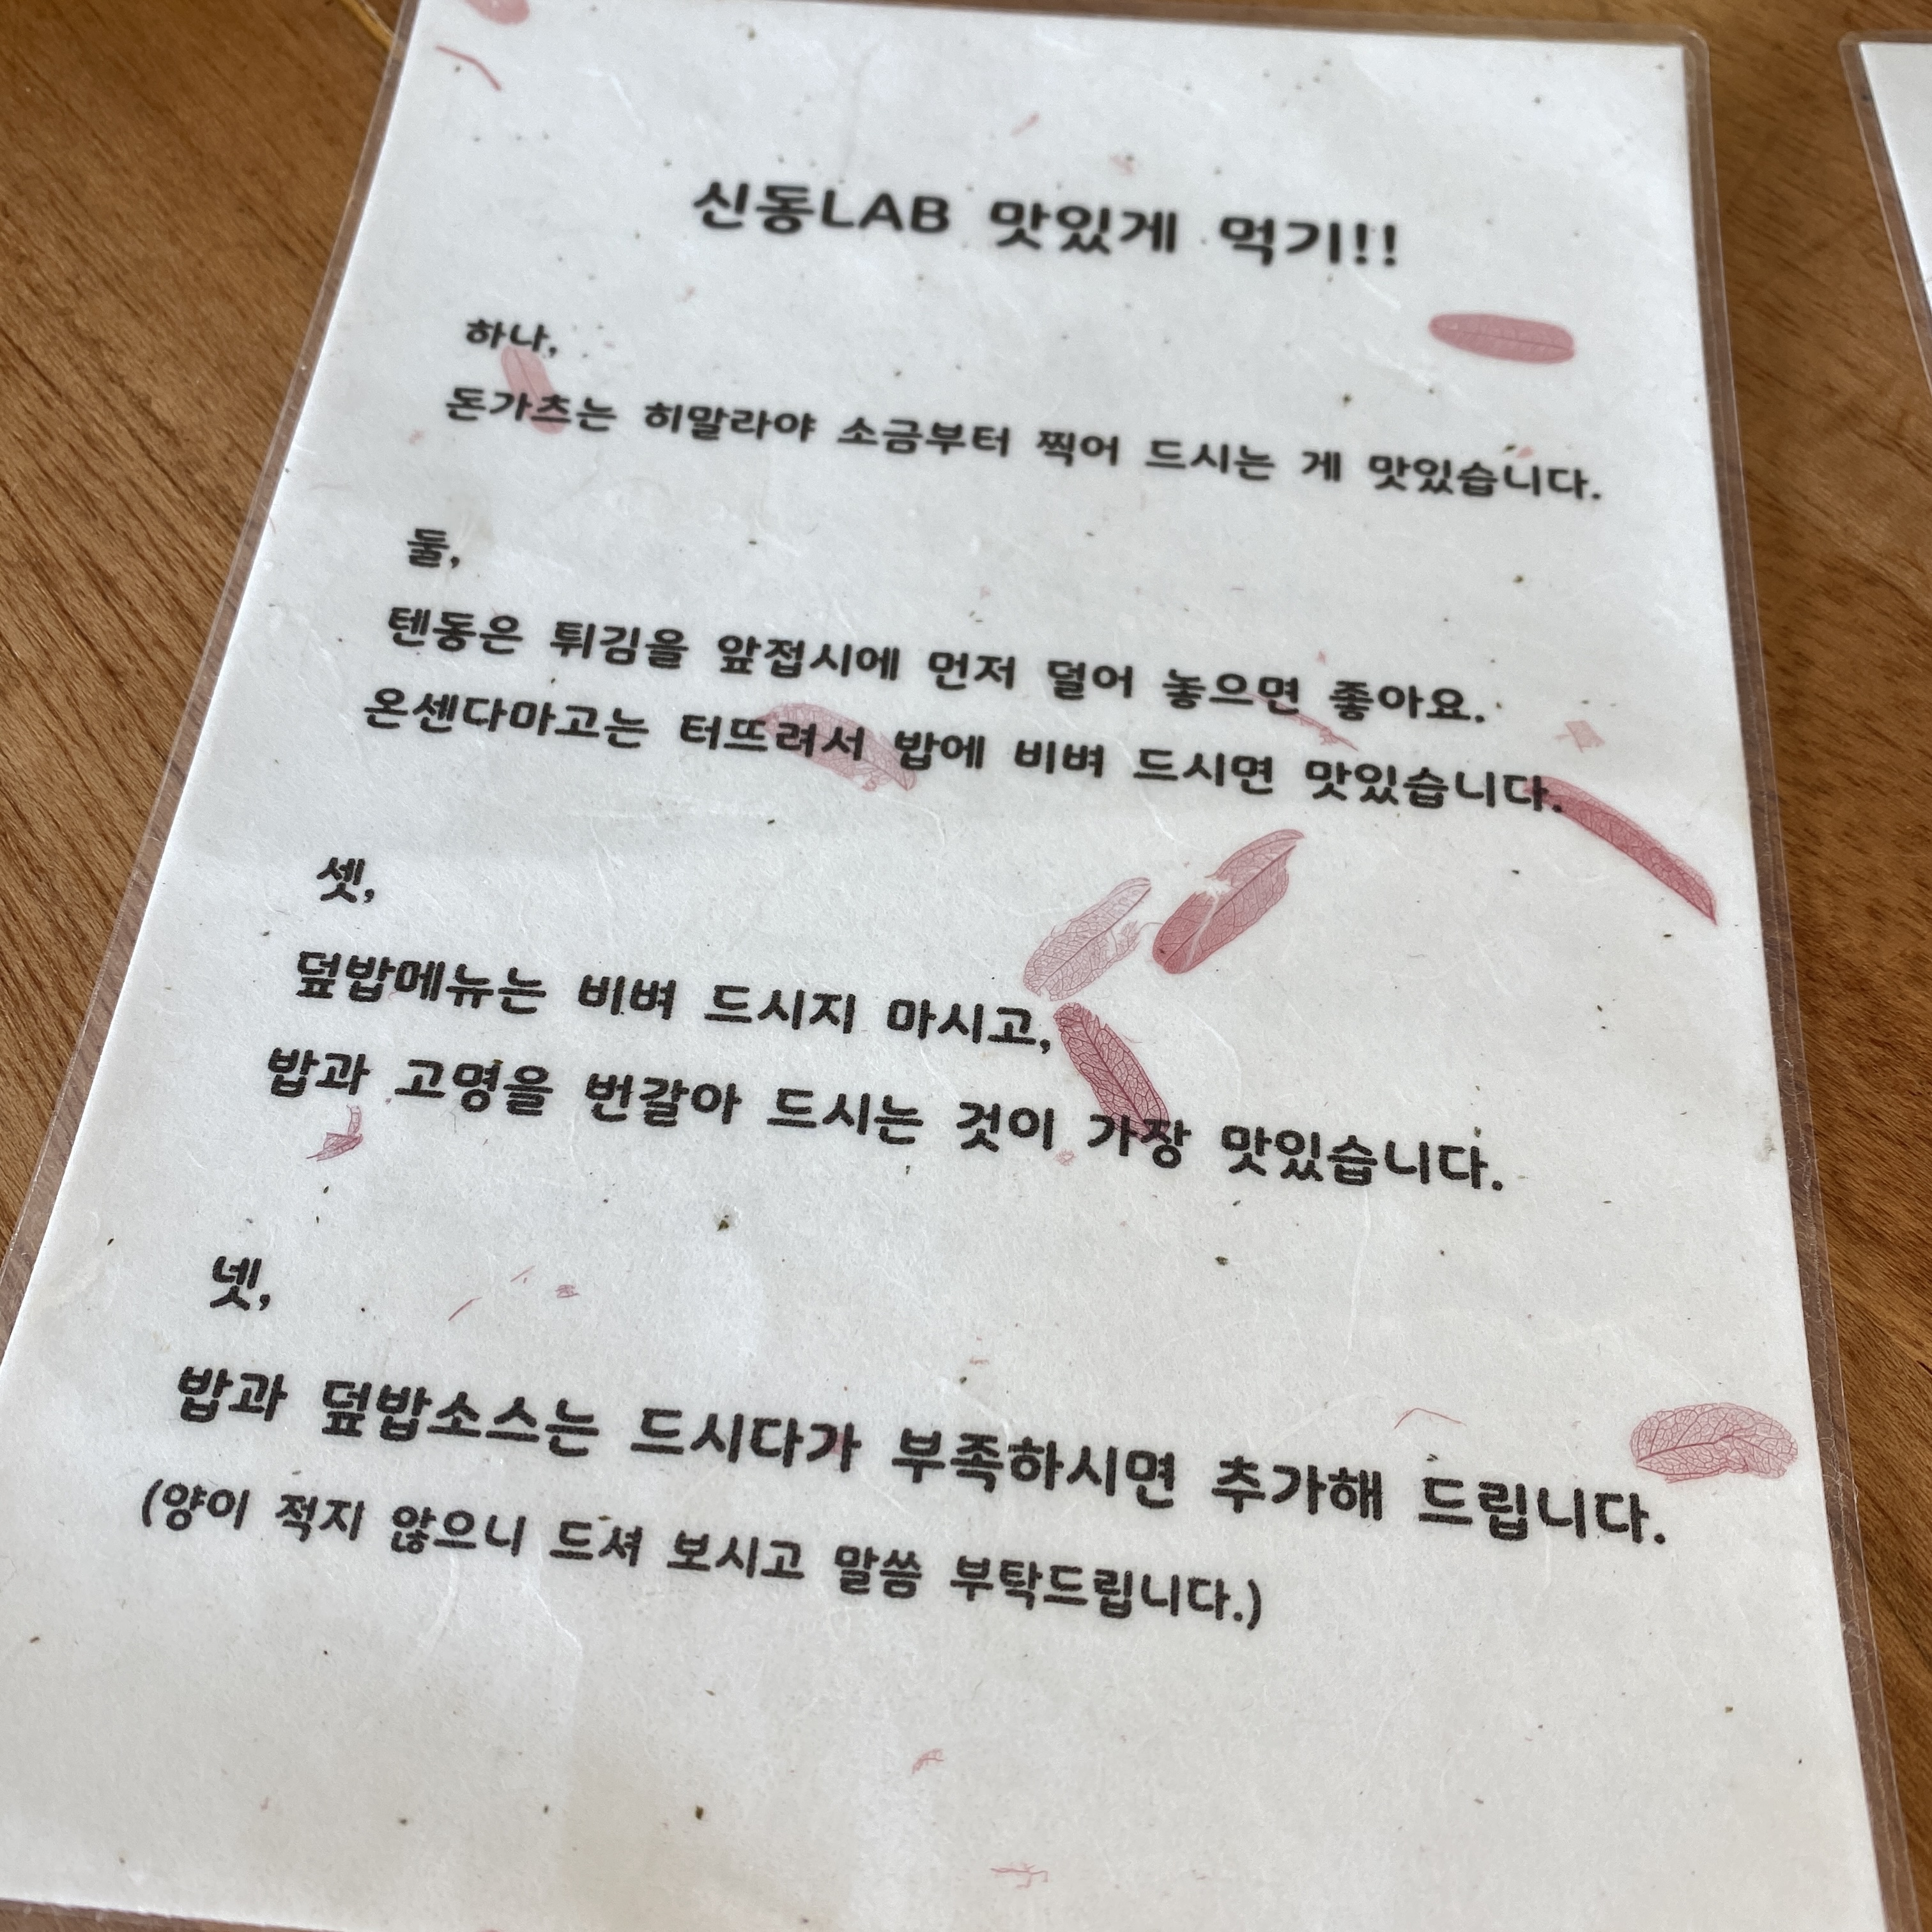 신동LAB 맛있게 먹기!!
하나,
돈가츠는 히말라야 소금부터 찍어 드시는 게 맛있습니다.
둘,
텐동은 튀김을 앞접시에 먼저 덜어 놓으면 좋아요.
온센다마고는 터뜨려서 밥에 비벼 드시면 맛있습니다.
셋,
덮밥메뉴는 비벼 드시지 마시고,
밥과 고명을 번갈아 드시는 것이 가장 맛있습니다.
넷,
밥과 덮밥소스는 드시다가 부족하시면 추가해 드립니다.
(양이 적지 않으니 드셔 보시고 말씀 부탁드립니다.)